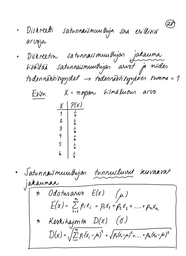 • Diskreetti satunnaismuuttuja saa erillisiä
arvoja
• Diskreetin satunnaismuuttujan jakauma
sisältää satunnaismuuttujan arvot ja niiden
todennäköisyydet → todennäköisyyksien summa = 1
Esim X = nopan silmäluvun arvo
X P(X)
1 1/6
2 1/6
3 1/6
4 1/6
5 1/6
6 1/6
• Satunnaismuuttujan tunnusluvut kuvaavat
jakaumaa
* Odotusarvo E(X) (μ)
E(X) = ∑ pᵢxᵢ = p₁x₁ + p₂x₂ + ... + pₙxₙ
* Keskihajonta D(X) (σ)
D(X) = √∑ pᵢ(xᵢ-μ)² = √p₁(x₁-μ)² + ... + pₙ(xₙ-μ)²